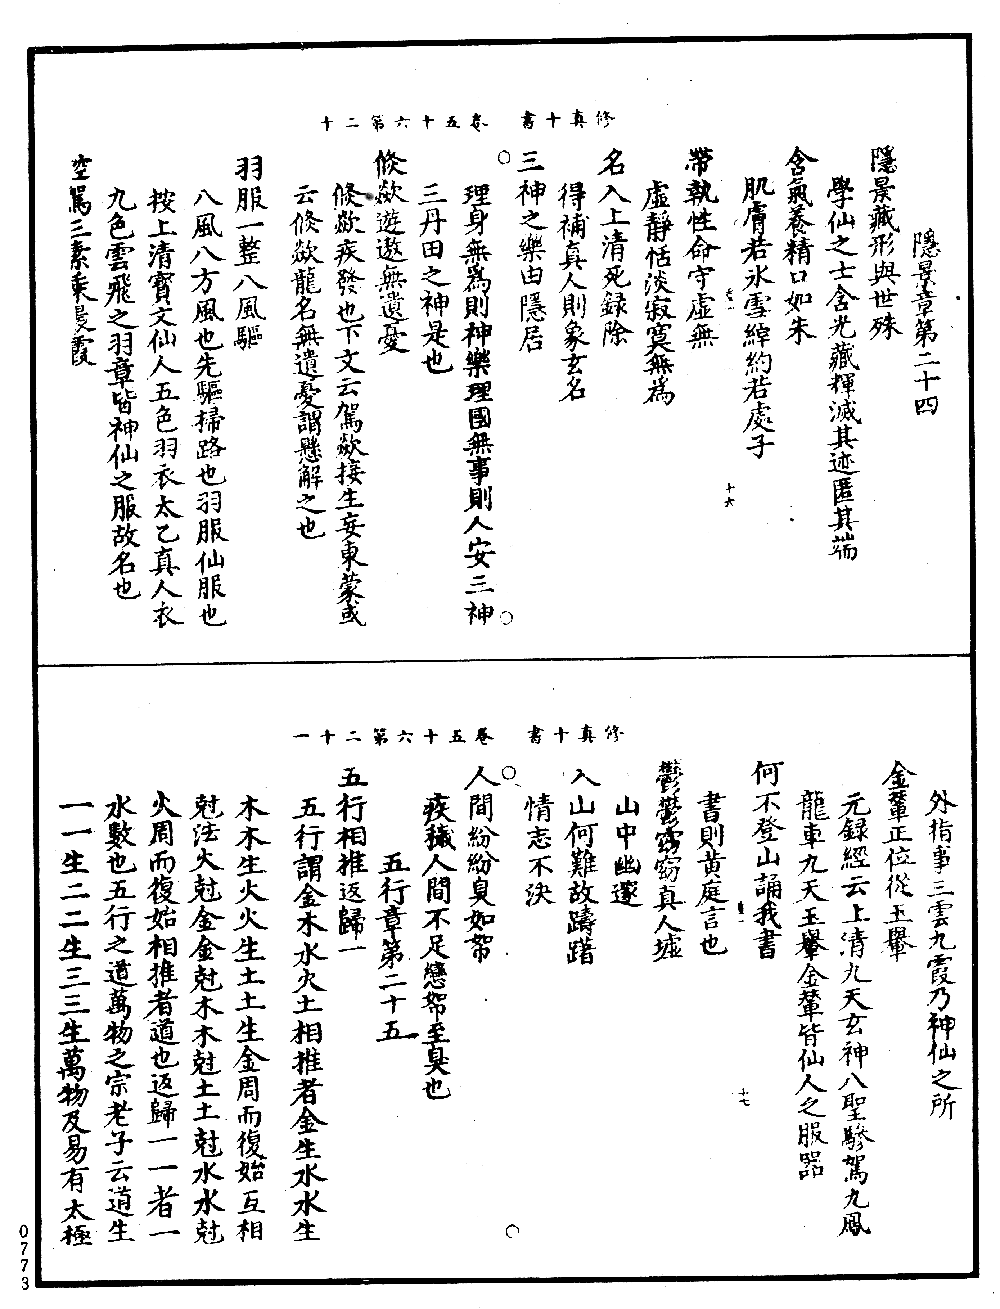 修真十書　卷五十六第二十
隱景章第二十四
隱景藏形與世殊
學仙之士含光藏輝滅其迹匿其端
含氣養精口如朱
肌膚若氷雪綽約若處子
帶執性命守虛無
虛靜恬淡寂寞無為
名入上清死録除
得補真人則象玄名
三神之樂由隱居
理身無為則神樂理國無事則人安三神
三丹田之神是也
倏歘遊遨無遺憂
倏歘疾發也下文云駕歘接生宴東蒙或
云倏歘龍名無遺憂謂懸解之也
羽服一整八風驅
八風八方風也先驅掃路也羽服仙服也
按上清寳文仙人五色羽衣太乙真人衣
九色雲飛之羽章皆神仙之服故名也
空駕三素乘晨霞
十六
修真十書　卷五十六第二十一
外指事三雲九霞乃神仙之所
金輦正位從玉轝
元録經云上清九天玄神八聖驂駕九鳳
龍車九天玉轝金輦皆仙人之服器
何不登山誦我書
書則黄庭言也
鬱鬱窈窈真人墟
山中幽邃
入山何難故躊躇
情志不決
人間紛紛臭如帤
疾穢人間不足戀帤至臭也
五行章第二十五
五行相推返歸一
五行謂金木水火土相推者金生水水生
木木生火火生土土生金周而復始互相
尅法火尅金金尅木木尅土土尅水水尅
火周而復始相推者道也返歸一一者一
水數也五行之道萬物之宗老子云道生
一一生二二生三三生萬物及易有太極
十七
0773